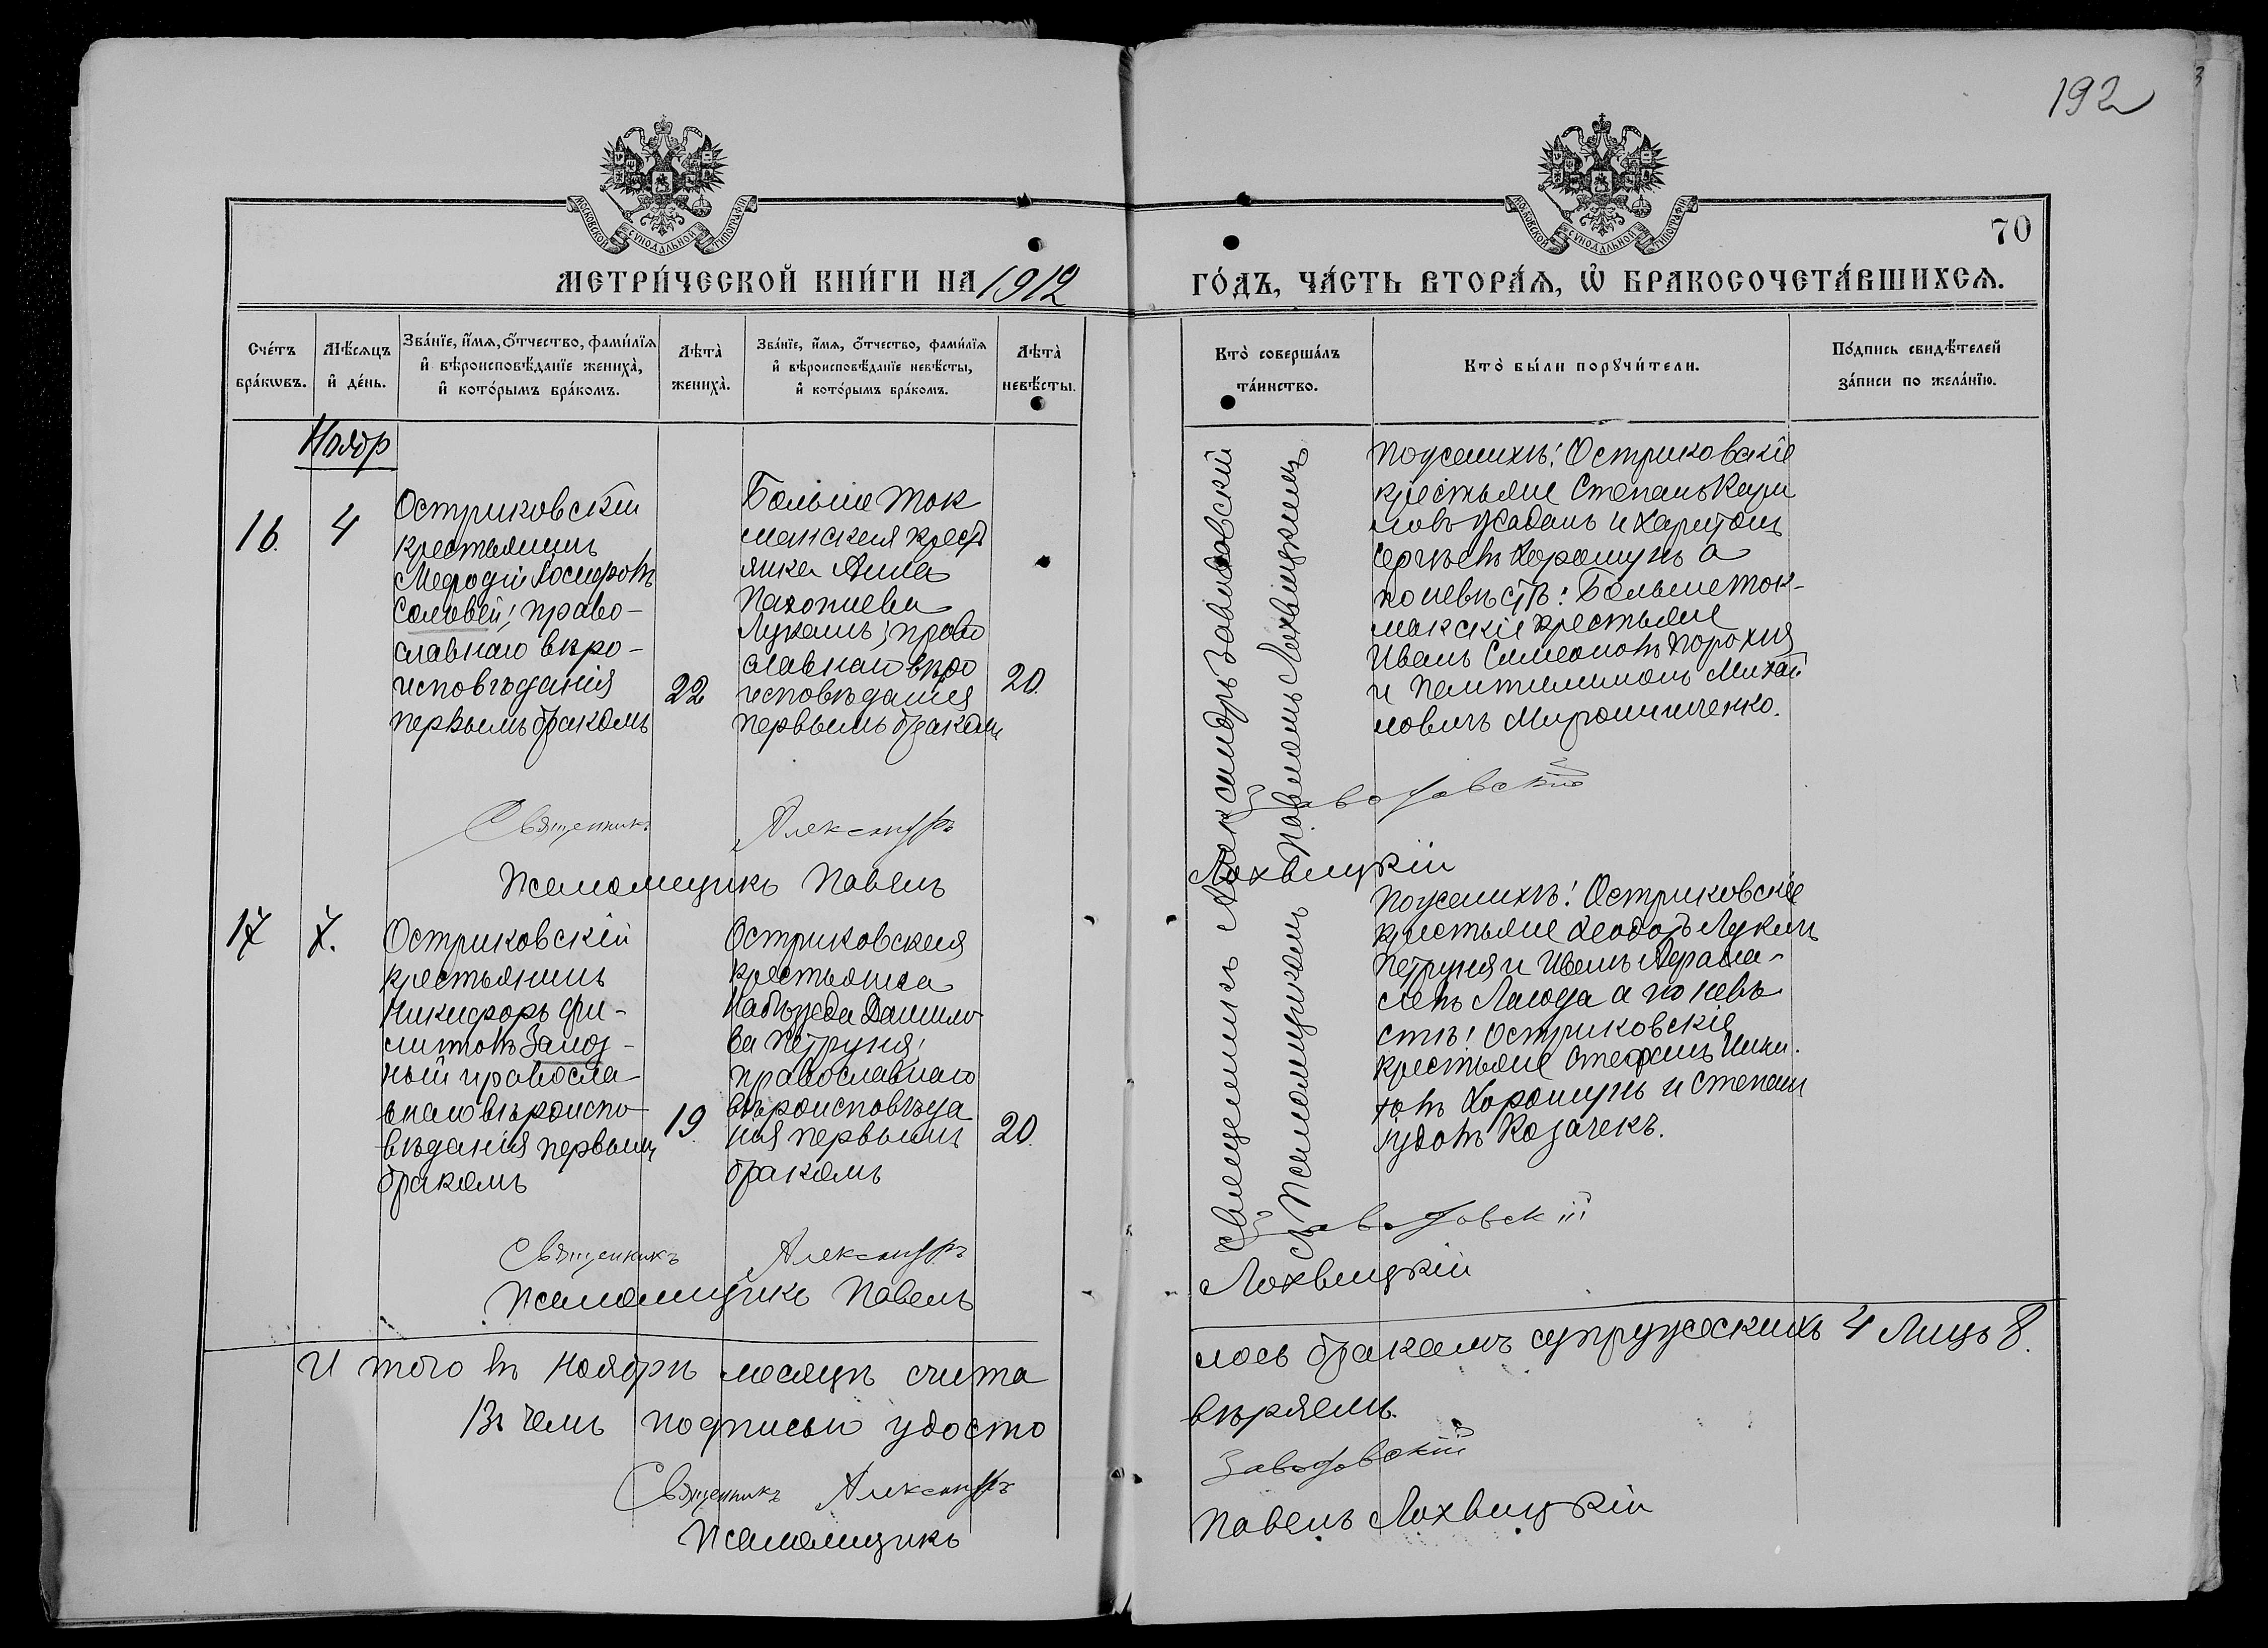 192
МОСКОВСКОЙ СУНОДАЛЬНОЙ ТИПОГРАФІИ
МОСКОВСКОЙ СУНОДАЛЬНОЙ ТИПОГРАФІИ
70
МЕТРИ́ЧЕСКОЙ КНИ́ГИ НА 1912
ГО́ДЪ, ЧА́СТЬ ВТОРА́Ѧ, Ѽ БРАКОСОЧЕТА́ВШИХСѦ.
Счéтъ
брáкѡвъ.
Мѣ́сѧцъ
и҆ дéнь.
Звáнїе, и҆́мѧ, ѻ҆́тчество, фамѝлїѧ
и҆ вѣроисповѣ́данїе женихà,
и҆ котóрымъ брáкомъ.
Лѣтà
женихà.
Звáнїе, и҆́мѧ, ѻ҆́тчество, фамѝлїѧ
и҆ вѣроисповѣ́данїе невѣ́сты,
и҆ котóрымъ брáкомъ.
Лѣтà
невѣ́сты.
Ктò совершáлъ
тáинство.
Ктò бы́ли порꙋчи́тели.
Пóдпись свидѣ́телей
зáписи по желáнїю.
Ноябр
16.
4
Остриковскій
крестьянинъ
Мефодій Іосифовъ
Соловей; право-
славнаго вѣро-
исповѣданія
первымъ бракомъ
22
Больше Ток
макская крест
янка Анна
Пахомиева
Лукашъ; право
славнаго вѣро
исповѣданія
первымъ бракомъ
20.
Священникъ Александръ Заводовский
с Псаломщикомъ Павломъ Лохвицкимъ
По женихѣ: Остриковскіе
крестьяне Степанъ Кири
ловъ Жаданъ и Харитонъ
Сергѣевъ Хорошунъ а
по невѣстѣ: Большеток-
макскіе крестьяне
Иванъ Симеоновъ Порохня
и Пантилимонъ Михай
ловичъ Мирошниченко.
Священникъ Александръ Заводовскій
Псаломщикъ Павелъ Лохвицкій
17
7.
Остриковскій
крестьянинъ
Никифоръ Фи-
ный православ-
внаго вѣроиспо
вѣданія первымъ
бракомъ
19.
Остриковская
крестьянка
Надѣжда Данило
ва Петруня;
православнаго
вѣроисповѣда
нія первымъ
бракомъ
20.
По женихѣ: Остриковскіе
крестьяне Феодотъ Лукичъ
Петруня и Иванъ Афана-
сіевъ Лагода а по невѣ
стѣ: Остриковскіе
крестьяне Стефанъ Ники.
товъ Хорошунъ и Степан
Іудовъ Козачекъ.
Священникъ Александръ Заводовскій
Псаломщикъ Павелъ Лохвицкій
И того въ Ноябрѣ месяцѣ счита лось бракамъ супружескихъ 4 Лицъ 8.
Въ чемъ подписью удосто вѣряемъ.
Священникъ Александръ Заводовскій
Псаломщикъ Павелъ Лохвицкій